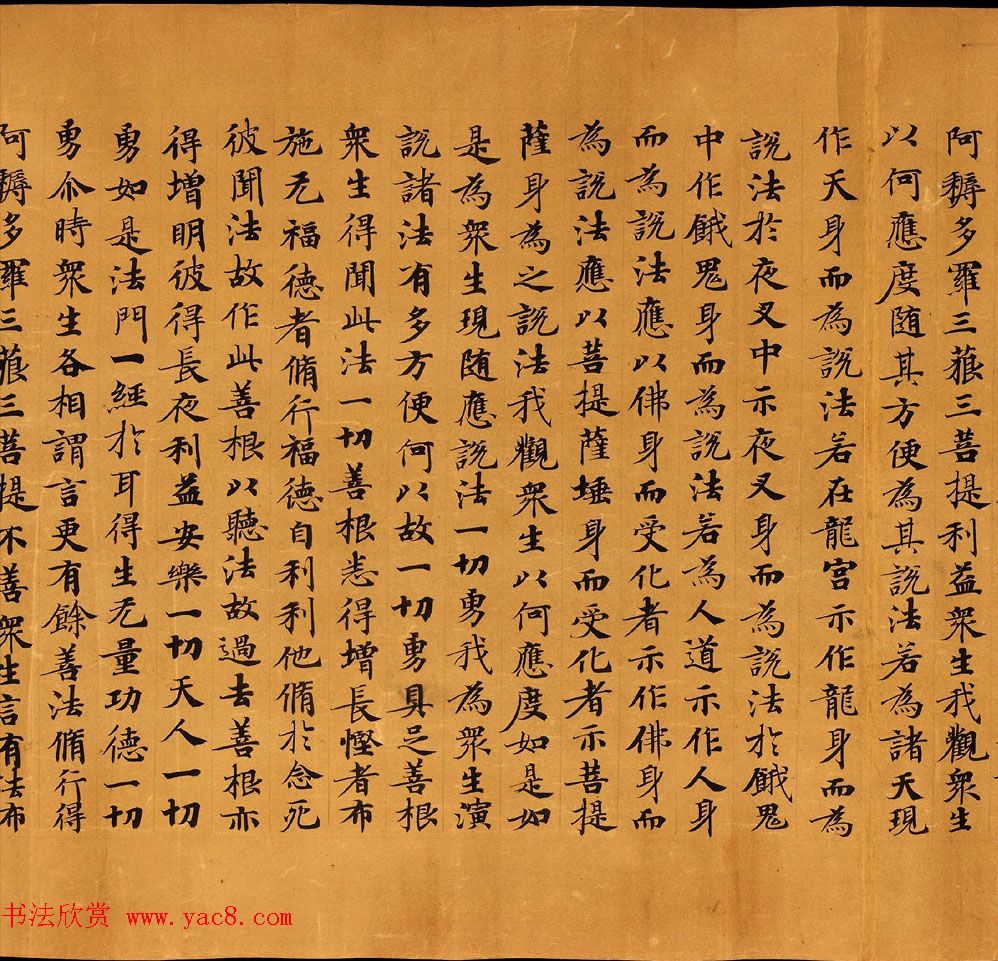 阿耨多羅三藐三菩提利益眾生我觀眾生
以何應度随其方便為其說法若為諸天現
作天身而為說法若在龍宮示作龍身而為
說法於夜叉中示夜叉身而為說法於餓鬼
中作餓鬼身而為說法若為人道示作人身
而為說法應以佛身而受化者示作佛身而
為說法應以菩提薩埵身而受化者示菩提
薩身為之說法我觀眾生以何應度如是如
是為眾生現随應說法一切勇我為眾生演
說諸法有多方便何以故一切勇具足善根
眾生得聞此法一切善根悉得增長慳者布
施无福德者脩行福德自利利他脩於念死
彼聞法故作此善根以聽法故過去善根亦
得增明彼得長夜利益安樂一切天人一切
勇如是法門一經於耳得生无量功德一切
勇尒時眾生各相謂言更有餘善法脩行得
阿耨多羅三藐三菩提不善眾生言有法布
书法欣赏 www.yac8.com